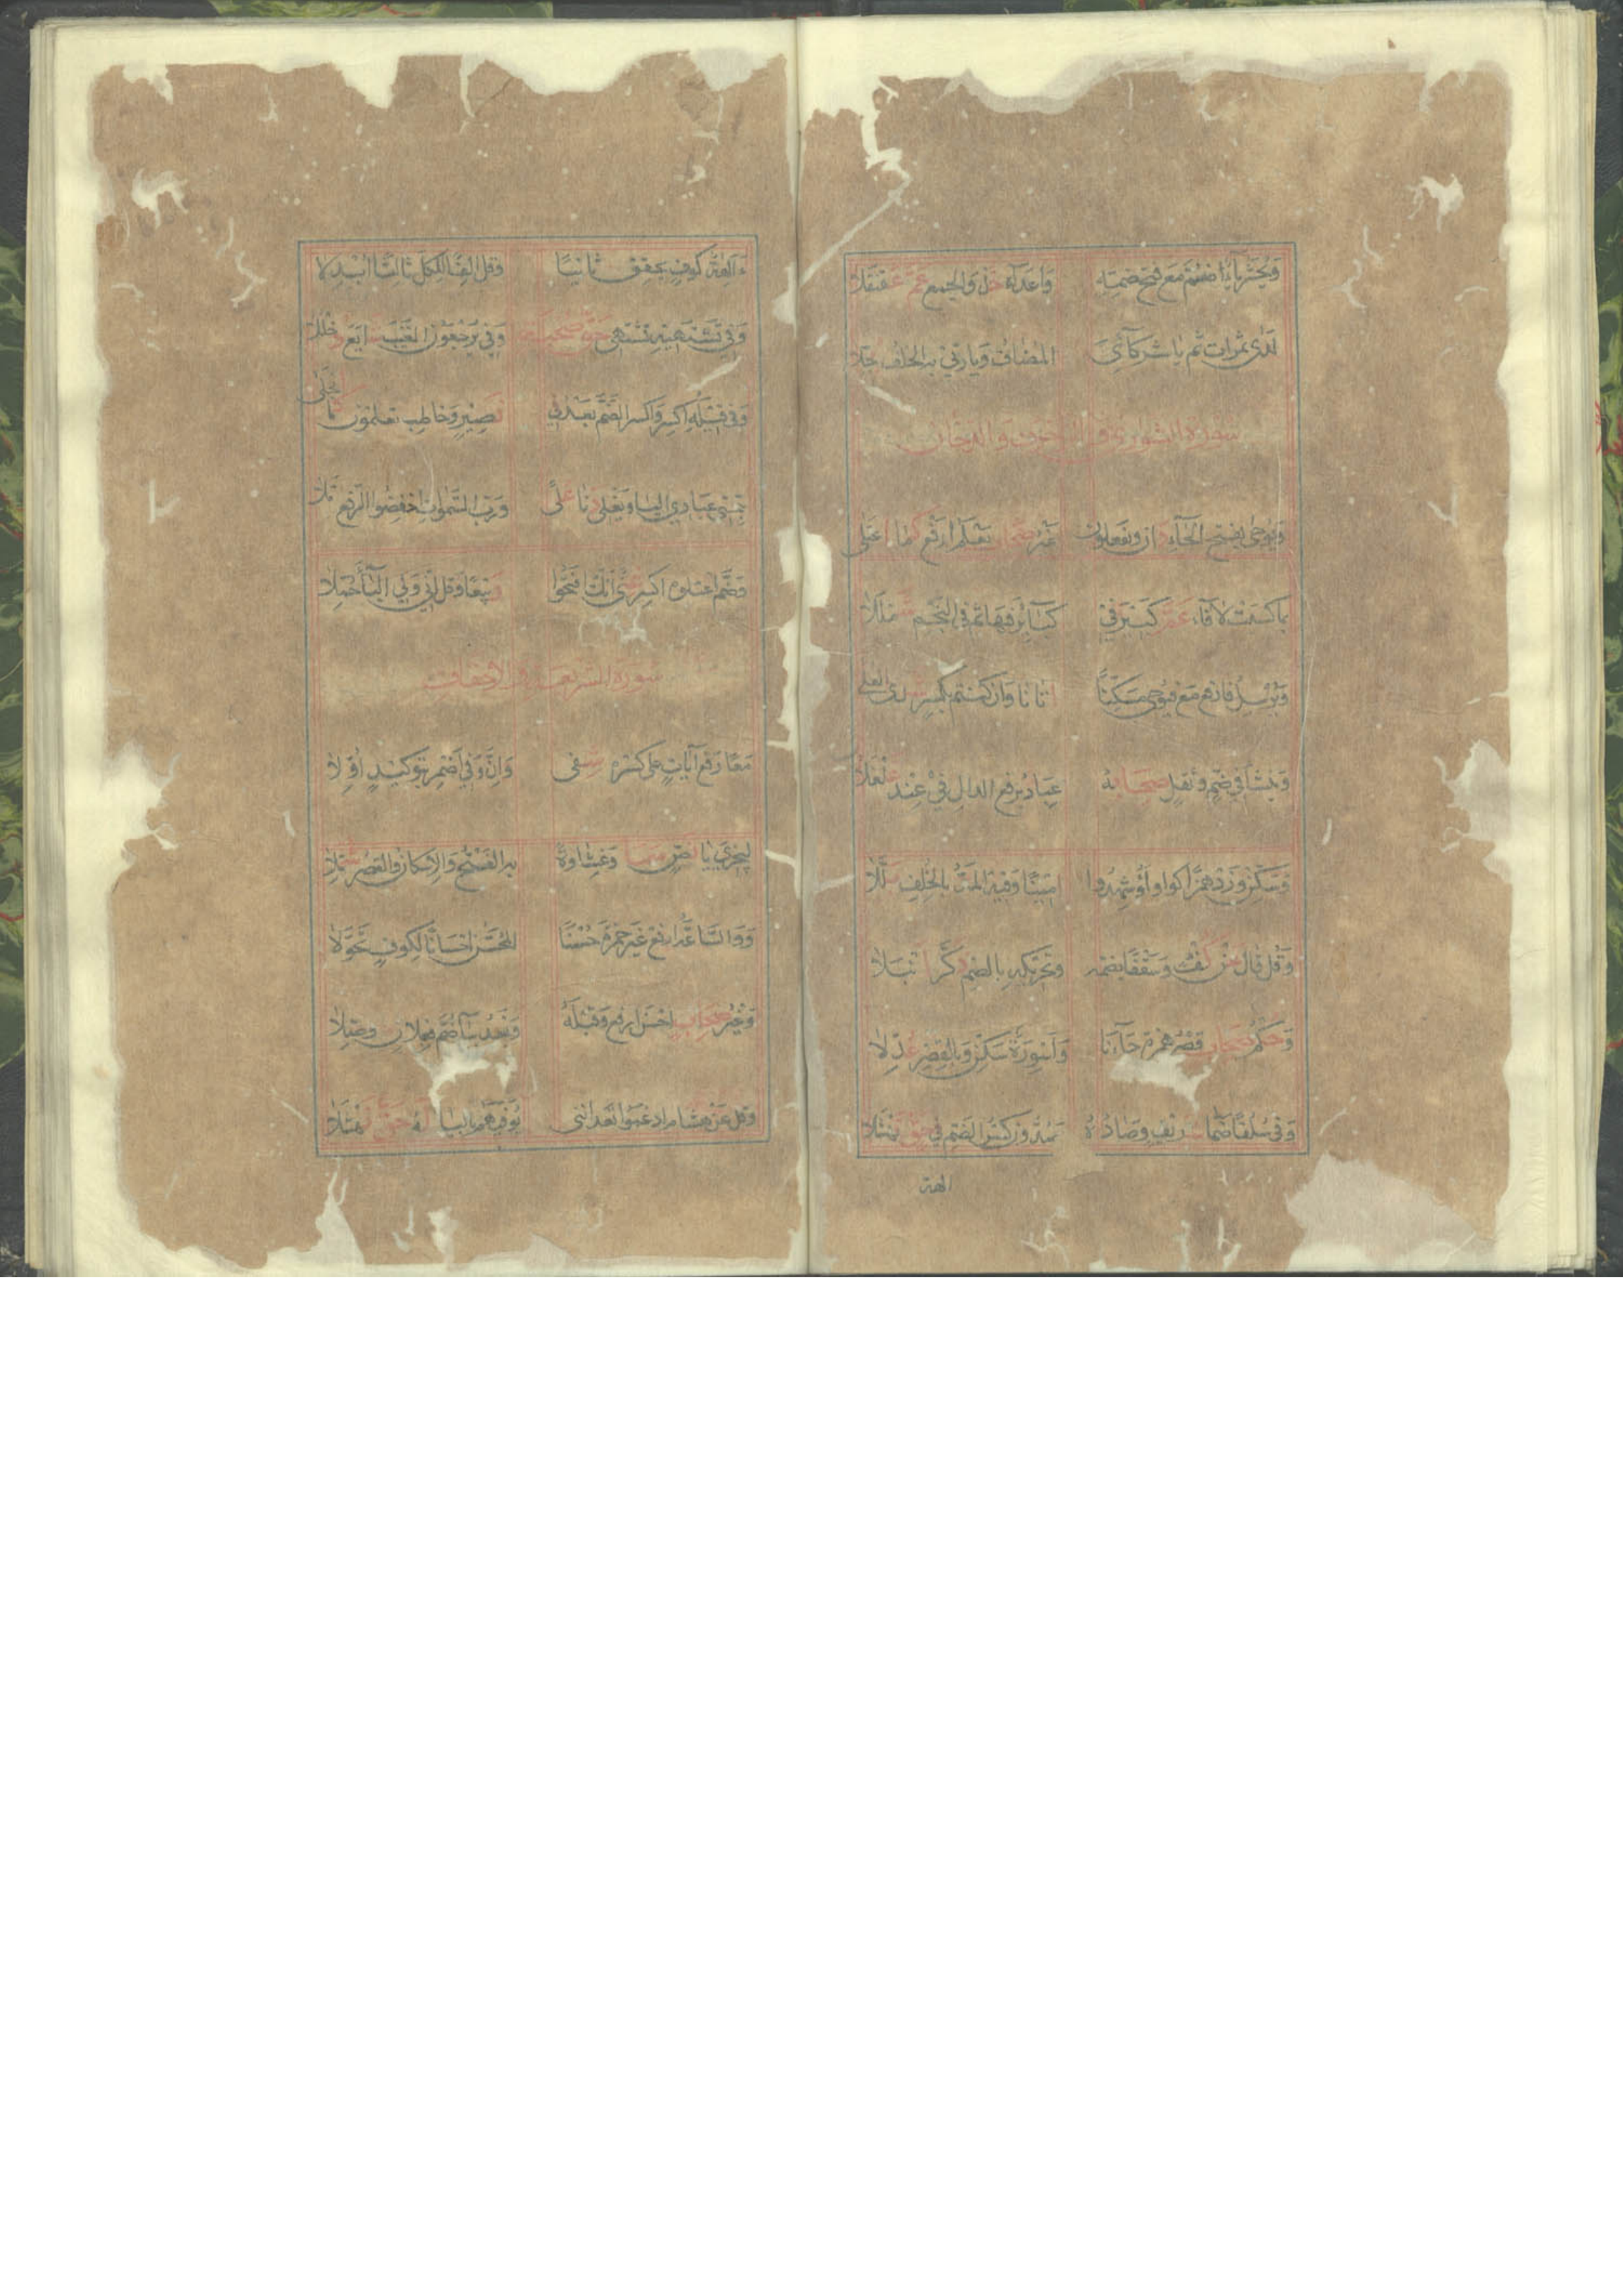 وَيُحْشَرُ يَاءٌ ضُمَّ مَعْ فَتْحِ ضَمِّهِ وَأَعْدَاءُ خُذْ وَالْجَمْعُ عَمَّ عَقَنْقَلَا
لَدَى ثَمَرَاتٍ ثُمَّ يَا شُرَكَائِيَ الْمُضَافُ وَيَا رَبِّي بِهِ الْخُلْفُ
سورة الشورى والزخرف والدخان
وَيُوحَى بِفَتْحِ الْحَاءِ دَانَ وَيَفْعَلُونَ غَيْرُ صِحَابٍ يَعْلَمَ ارْفَعْ كَمَا اعْتَلَى
بِمَا كَسَبَتْ لَا فَاءَ عَمَّ كَبِيرَ فِي كَبَائِرَ فِيهَا ثُمَّ فِي النَّجْمِ شَمْلَلَا
وَيُرْسِلَ فَارْفَعْ مَعْ فَيُوحِي مُسَكِّنًا أَتَانَا وَأَنْ كُنْتُمْ بِكَسْرٍ شَذَا الْعُلَى
وَيَنْشَأُ فِي ضَمٍّ وَثِقْلٍ صِحَابُهُ عِبَادُ بِرَفْعِ الدَّالِ فِي عِنْدَ غَلْغَلَا
وَسَكِّنْ وَزِدْ هَمْزًا كَوَاوٍ أَؤُشْهِدُوا أَمِينًا وَفِيهِ الْمَدُّ بِالْخُلْفِ بَلَّلَا
وَقُلْ قَالَ عَنْ كُفْؤٍ وَسَقْفًا بِضَمِّهِ وَتَحْرِيكِهِ بِالضَّمِّ ذَكَّرَ أَنْبَلَا
وَحُكْمُ صِحَابٍ قَصْرُ هَمْزَةِ جَاءَنَا وَأَسْوِرَةٌ سَكِّنْ وَبِالْقَصْرِ عُدِّلَا
وَفِي سُلُفًا ضَمَّا شَرِيفٍ وَصَادُهُ يَصُدُّونَ كَسْرُ الضَّمِّ فِي حَقِّ نَهْشَلَا
الهة
ءَآلِهَةٌ كُوفٍ يُحَقِّقُ ثَانِيًا وَقُلْ أَلِفًا لِلْكُلِّ ثَالِثًا أُبْدِلَا
وَفِي تَشْتَهِيهِ تَشْتَهِي حَقُّ صُحْبَةٍ وَفِي يُرْجَعُونَ الْغَيْبُ شَايَعَ دُخْلُلَا
وَفِي قِيلَهُ اكْسِرْ وَاكْسِرِ الضَّمَّ بَعْدُ فِي نَصِيرٍ وَخَاطِبْ تَعْلَمُونَ كَمَا انْجَلَى
بِتَحْتِي عِبَادِي الْيَا وَيَغْلِي دَنَا عُلًى وَرَبُّ السَّمَوَاتِ اخْفِضُوا الرَّفْعَ ثُمَّلَا
وَضَمَّ اعْتِلُوهُ اكْسِرْ غِنًى أَنَّكَ افْتَحُوا رَبِيعًا وَقُلْ إِنِّي وَلِي الْيَاءُ حُمِّلَا
سورة الشريعة والأحقاف
مَعًا رَفْعُ آيَاتٍ عَلَى كَسْرِهِ شَفَى وَإِنَّ وَفِي أَضْمِرْ بِتَوْكِيدٍ أَوِّلَا
لِيَجْزِيَ يَا نَصٍّ سَمَا وَغِشَاوَةً بِهِ الْفَتْحُ وَالْإِسْكَانُ وَالْقَصْرُ شُمِّلَا
وَوَالسَّاعَةُ ارْفَعْ غَيْرَ حَمْزَةَ حُسْنًا الْمُحَسِّنُ إِحْسَانًا لِكُوفٍ تَحَوَّلَا
وَغَيْرُ صِحَابٍ أَحْسَنَ ارْفَعْ وَقَبْلَهُ وَبَعْدُ بِيَاءٍ ضُمَّ فِعْلَانِ وُصِّلَا
وَقُلْ عَنْ هِشَامٍ أَدْغَمُوا تَعِدَانِنِي نُوَفِّيَهُمْ بِالْيَا لَهُ حَقُّ نَهْشَلَا